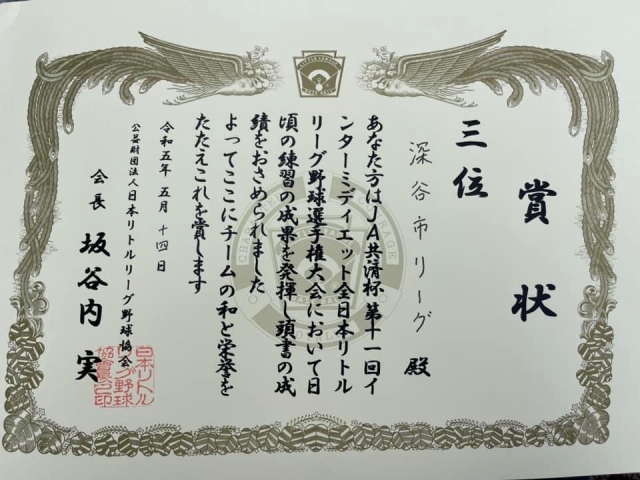 賞状
三位
深谷市リーグ 殿
あなた方はJA共済杯第十一回イ
ンターミディエット全日本リトル
リーグ野球選手権大会において日
頃の練習の成果を発揮し頭書の成
績をおさめられました
よってここにチームの和と栄誉を
たたえこれを賞します
令和五年五月十四日
公益財団法人日本リトルリーグ野球協会
会長 坂谷内 実
日本リトル
リーグ野球
協会会長印
CHARACTER COURAGE LOYALTY